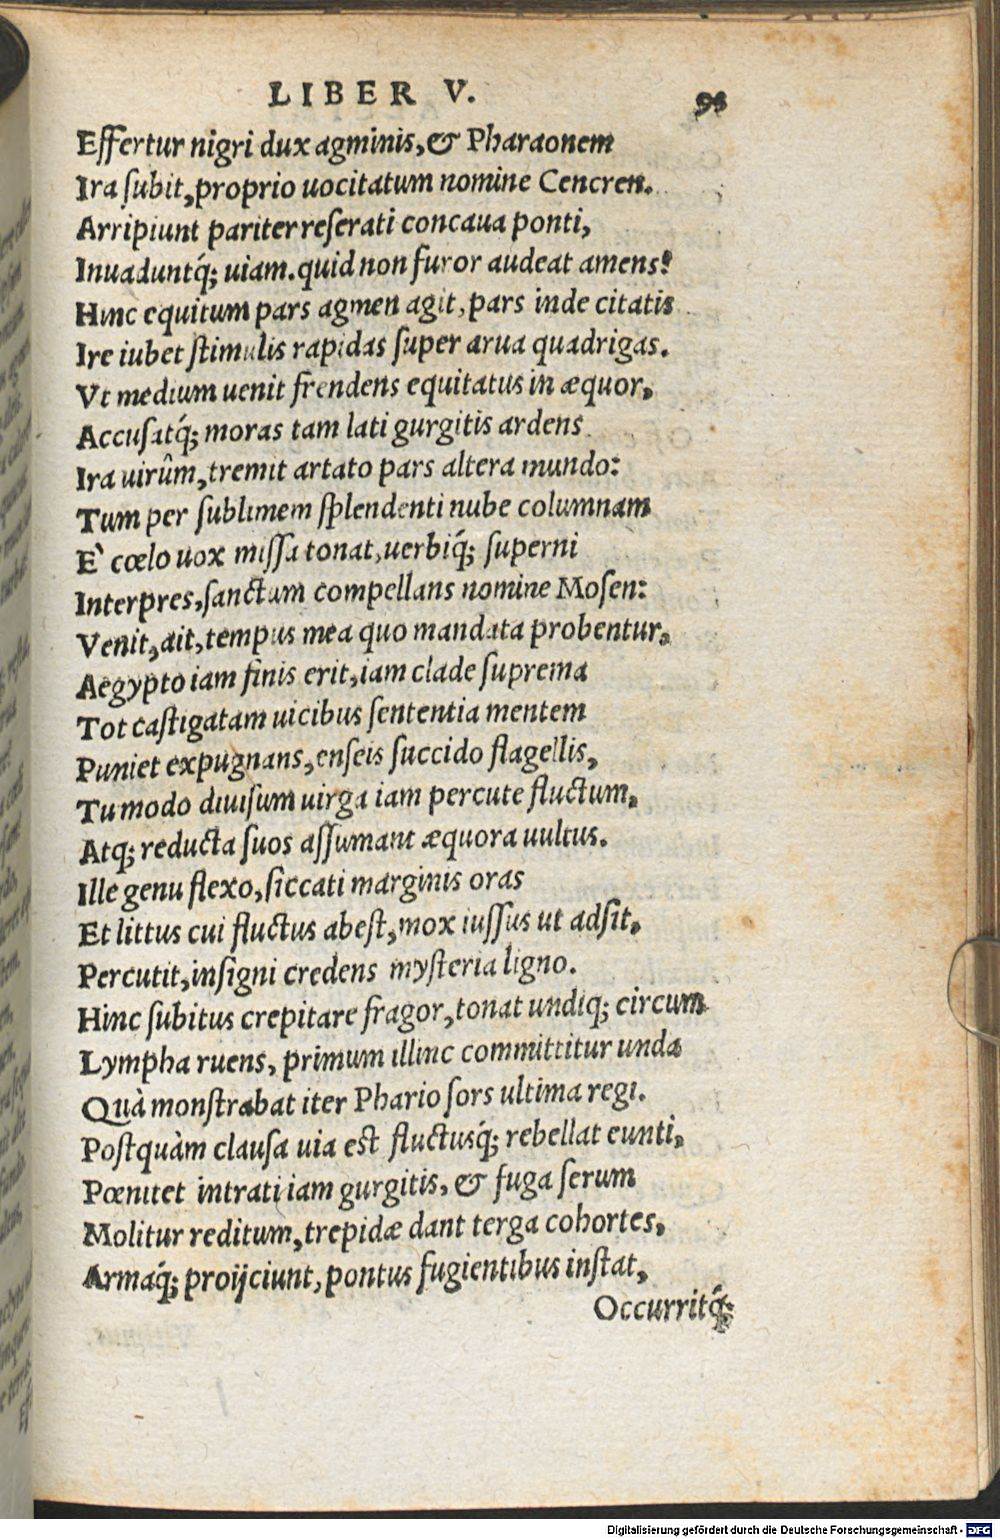 LIBER V. 95
Effertur nigri dux agminis, & Pharaonem
Ira ſubit, proprio uocitatum nomine Cencren.
Arripiunt pariter reſerati concaua ponti,
Inuaduntq́; uiam. quid non furor audeat amens?
Hinc equitum pars agmen agit, pars inde citatis
Ire iubet ſtimulis rapidas ſuper arua quadrigas.
Vt medium uenit frendens equitatus in æquor,
Accuſatq́; moras tam lati gurgitis ardens
Ira uirûm, tremit artato pars altera mundo:
Tum per ſublimem ſplendenti nube columnam
E` cœlo uox miſſa tonat, uerbiq́; ſuperni
Interpres, ſanctum compellans nomine Moſen:
Venit, ait, tempus mea quo mandata probentur,
Aegypto iam finis erit, iam clade ſuprema
Tot caſtigatam uicibus ſententia mentem
Puniet expugnans, enſeis ſuccido flagellis,
Tu modo diuiſum uirga iam percute fluctum,
Atq; reducta ſuos aſſumant æquora uultus.
Ille genu flexo, ſiccati marginis oras
Et littus cui fluctus abeſt, mox iuſſus ut adſit,
Percutit, inſigni credens myſteria ligno.
Hinc ſubitus crepitare fragor, tonat undiq; circum
Lympha ruens, primum illinc committitur unda
Quà monſtrabat iter Phario ſors ultima regi.
Poſtquàm clauſa uia eſt fluctusq́; rebellat eunti,
Pœnitet intrati iam gurgitis, & fuga ſerum
Molitur reditum, trepidæ dant terga cohortes,
Armaq́; proijciunt, pontus fugientibus inſtat,
Occurritq́;
Digitalisierung gefördert durch die Deutsche Forschungsgemeinschaft - DFG